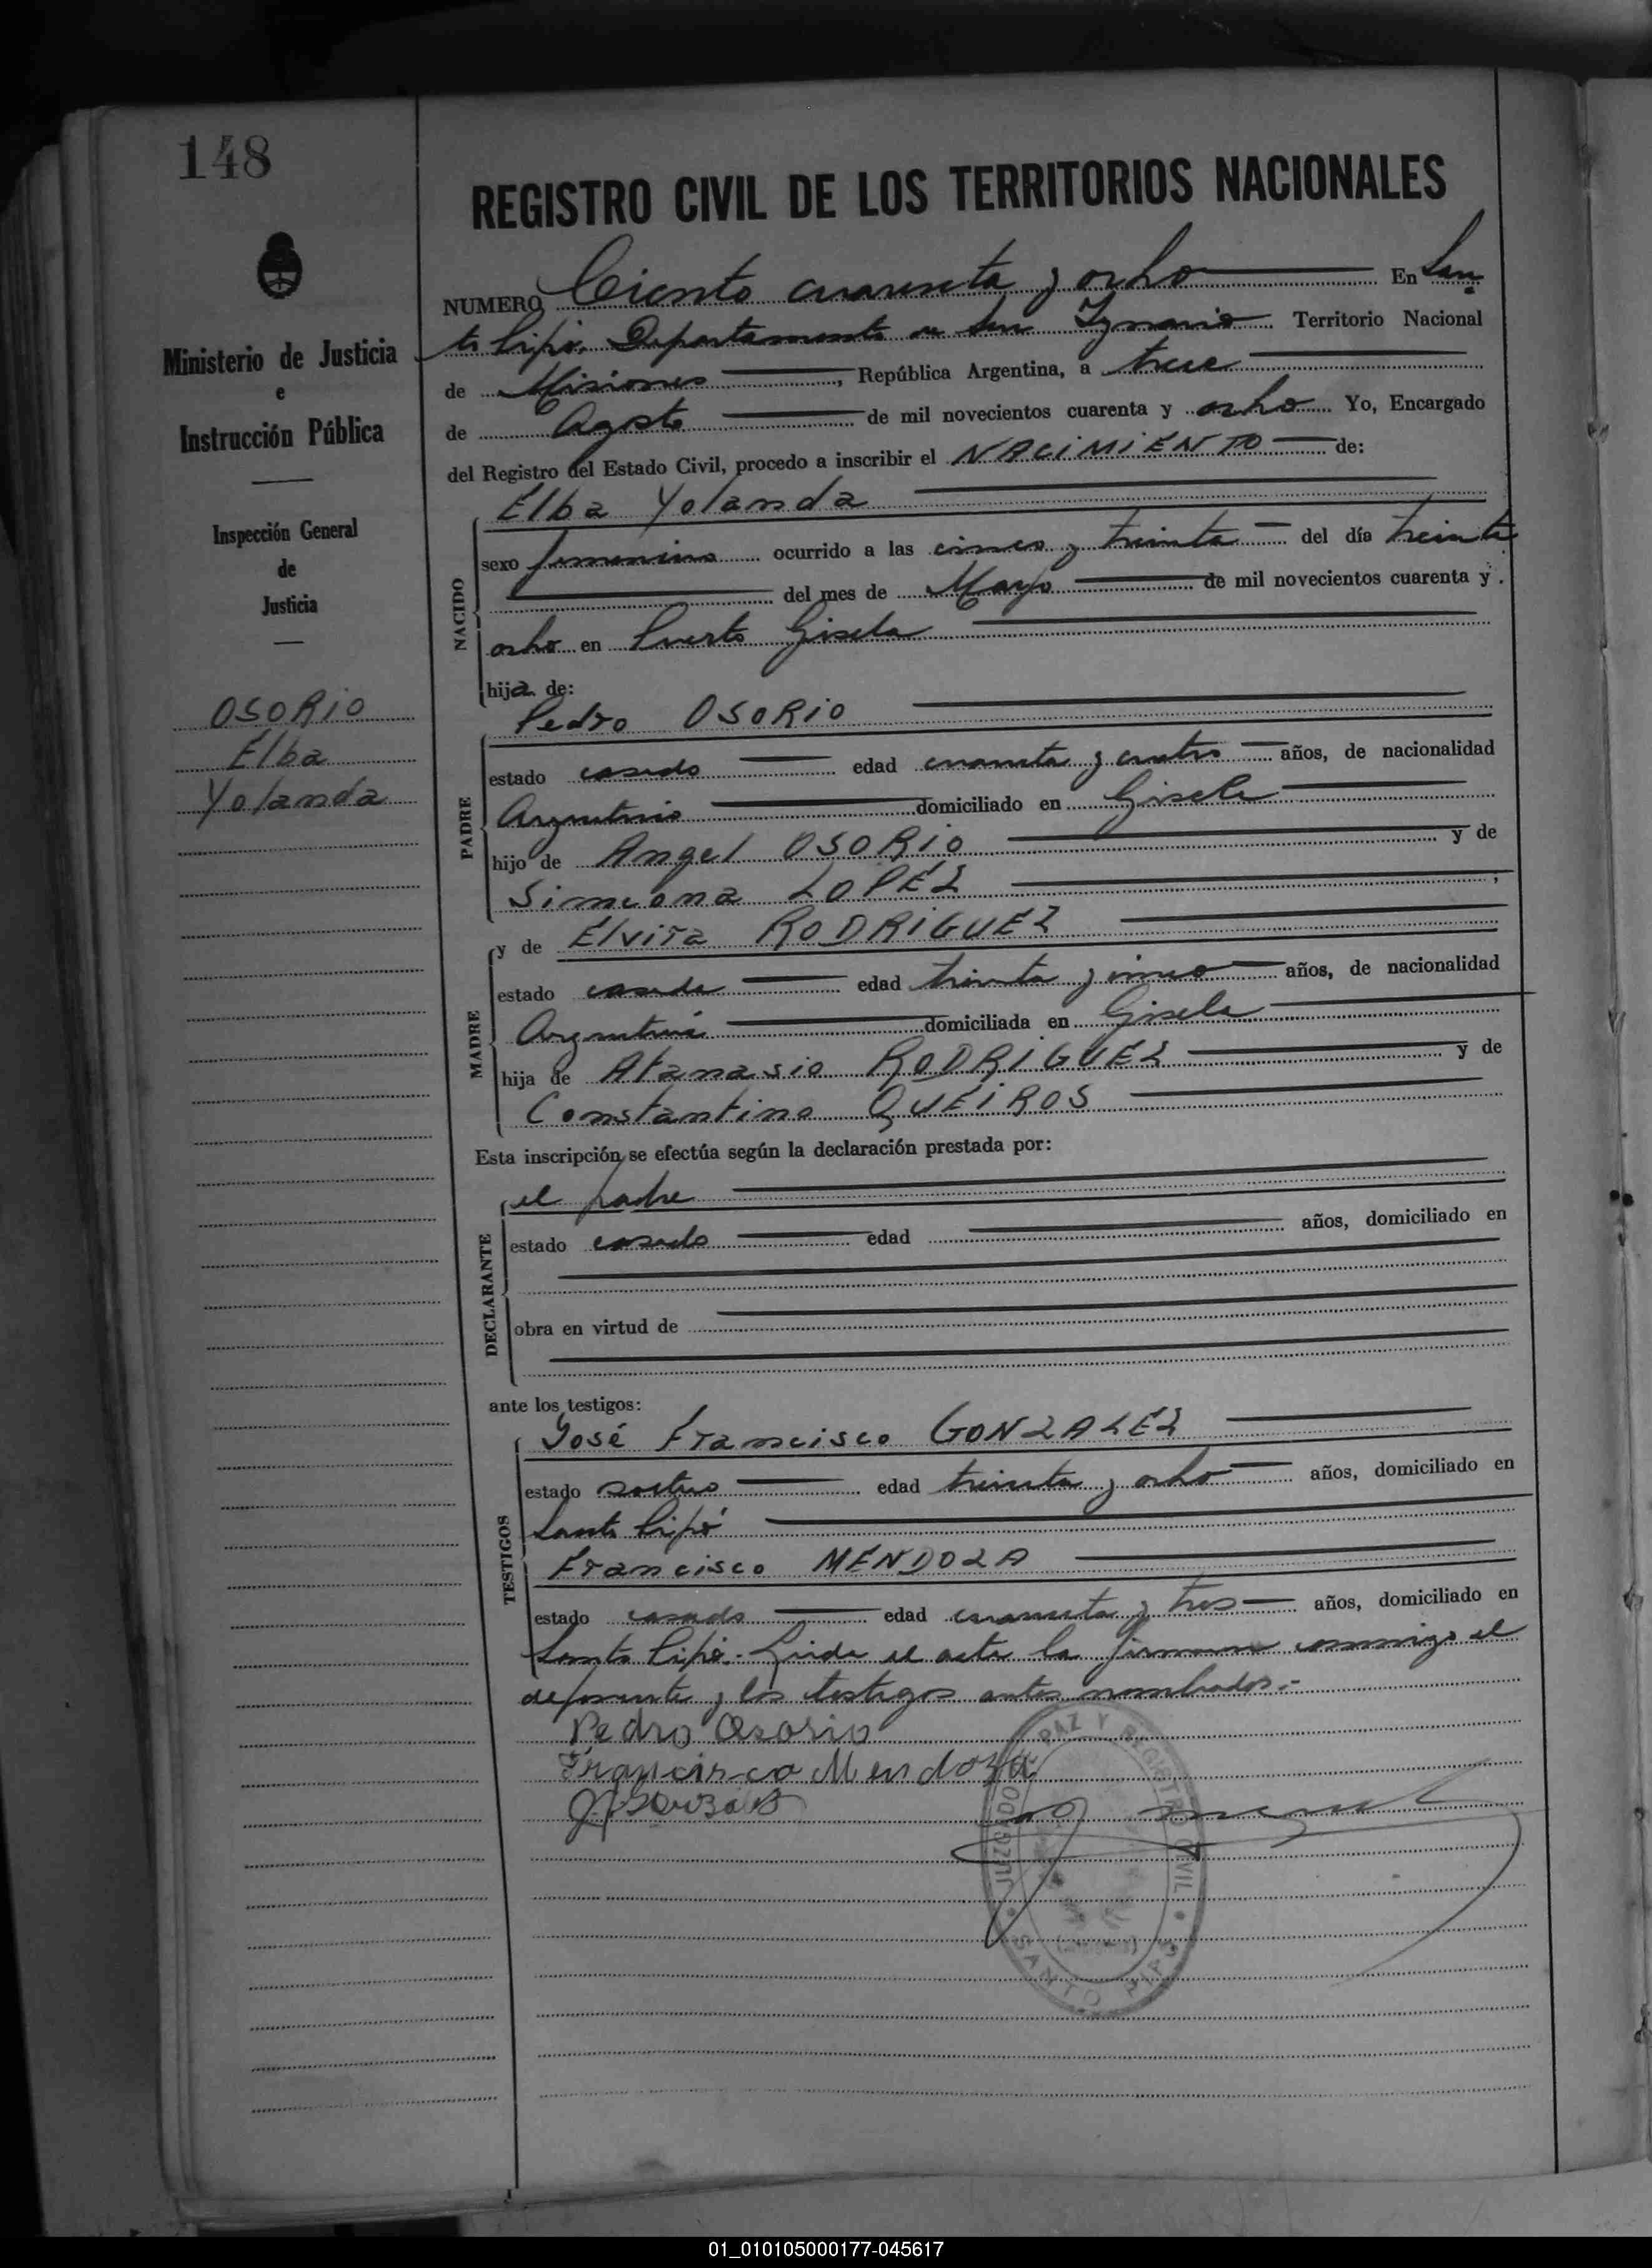 148
REGISTRO CIVIL DE LOS TERRITORIOS NACIONALES
Ministerio de Justicia
e
Instrucción Pública
Inspección General
de
Justicia
OSORIO
Elba
Yolanda
NUMERO Ciento cuarenta y ocho En San
to Pipó, Departamento de San Ignacio Territorio Nacional
de Misiones, República Argentina, a trece
de Agosto de mil novecientos cuarenta y ocho Yo, Encargado
del Registro del Estado Civil, procedo a inscribir el NACIMIENTO de:
NACIDO
Elba Yolanda
sexo femenino ocurrido a las cinco y treinta del día treinta
del mes de Mayo de mil novecientos cuarenta y
ocho en Puerto Gisela
hija de:
PADRE
Pedro OSORIO
estado casado edad cuarenta y cuatro años, de nacionalidad
Argentino domiciliado en Gisela
hijo de Angel OSORIO y de
Simeona LOPEZ
MADRE
y de Elvira RODRIGUEZ
estado casada edad treinta y cinco años, de nacionalidad
Argentina domiciliada en Gisela
hija de Atanasio RODRIGUEZ y de
Constantina QUEIROS
Esta inscripción se efectúa según la declaración prestada por:
DECLARANTE
el padre
estado casado edad años, domiciliado en
obra en virtud de
ante los testigos:
TESTIGOS
José Francisco GONZALEZ
estado soltero edad treinta y ocho años, domiciliado en
Santo Pipó
Francisco MENDOZA
estado casado edad cuarenta y tres años, domiciliado en
Santo Pipó.- Leída el acta la firman conmigo el
deponente y los testigos antes nombrados.-
Pedro Osorio
Francisco Mendoza
JUZGADO DE PAZ Y REGISTRO CIVIL
SANTO PIPÓ
01_010105000177-045617